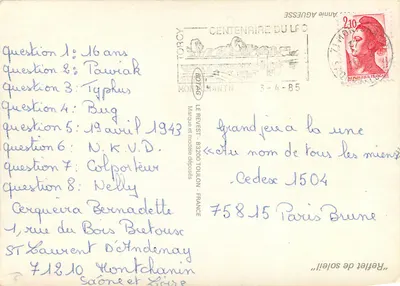 question 1: 16 ans
question 2: Pawiak
question 3: Typhus
question 4: Bug
question 5: 19 avril 1943
question 6: N.K.V.D.
question 7: Colporteur
question 8: Nelly
Cerqueira Bernadette
1, rue du Bois Bretoux
ST Laurent D'Andenay
71210 Montchanin
Saône et Loire
TORCY
CENTENAIRE DU LAC
3-4-85
2,10
Annie AGUESSE
LE REVEST - 83200 TOULON - FRANCE
Marque et modèle déposés
Grand jeu a la une
«Au nom de tous les miens»
Cedex 1504
75815 Paris Brune
"Reflet de soleil"